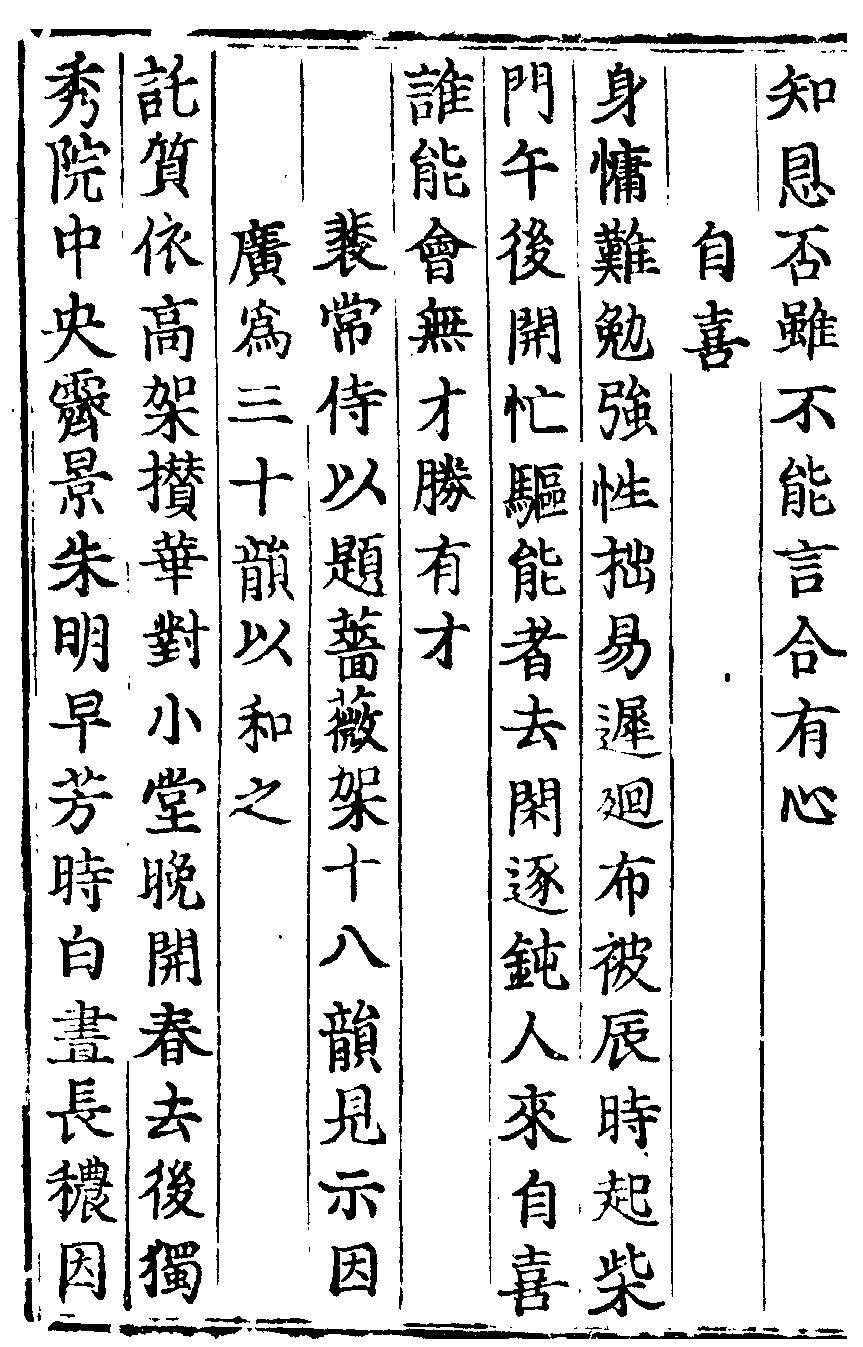 知恩否雖不能言合有心
自喜
身慵難勉強性拙易遲廻布被辰時起柴
門午後開忙驅能者去閑逐鈍人來自喜
誰能會無才勝有才
裴常侍以題薔薇架十八韻見示因
廣為三十韻以和之
託質依高架攢華對小堂晚開春去後獨
秀院中央霽景朱明早芳時白晝長穠因